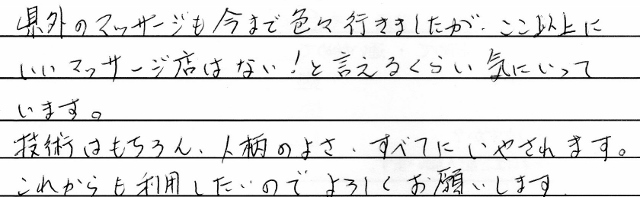 県外のマッサージも今まで色々行きましたが、ここ以上に
いいマッサージ店はない！と言えるくらい気にいって
います。
技術はもちろん、人柄のよさ、すべてにいやされます。
これからも利用したいのでよろしくお願いします